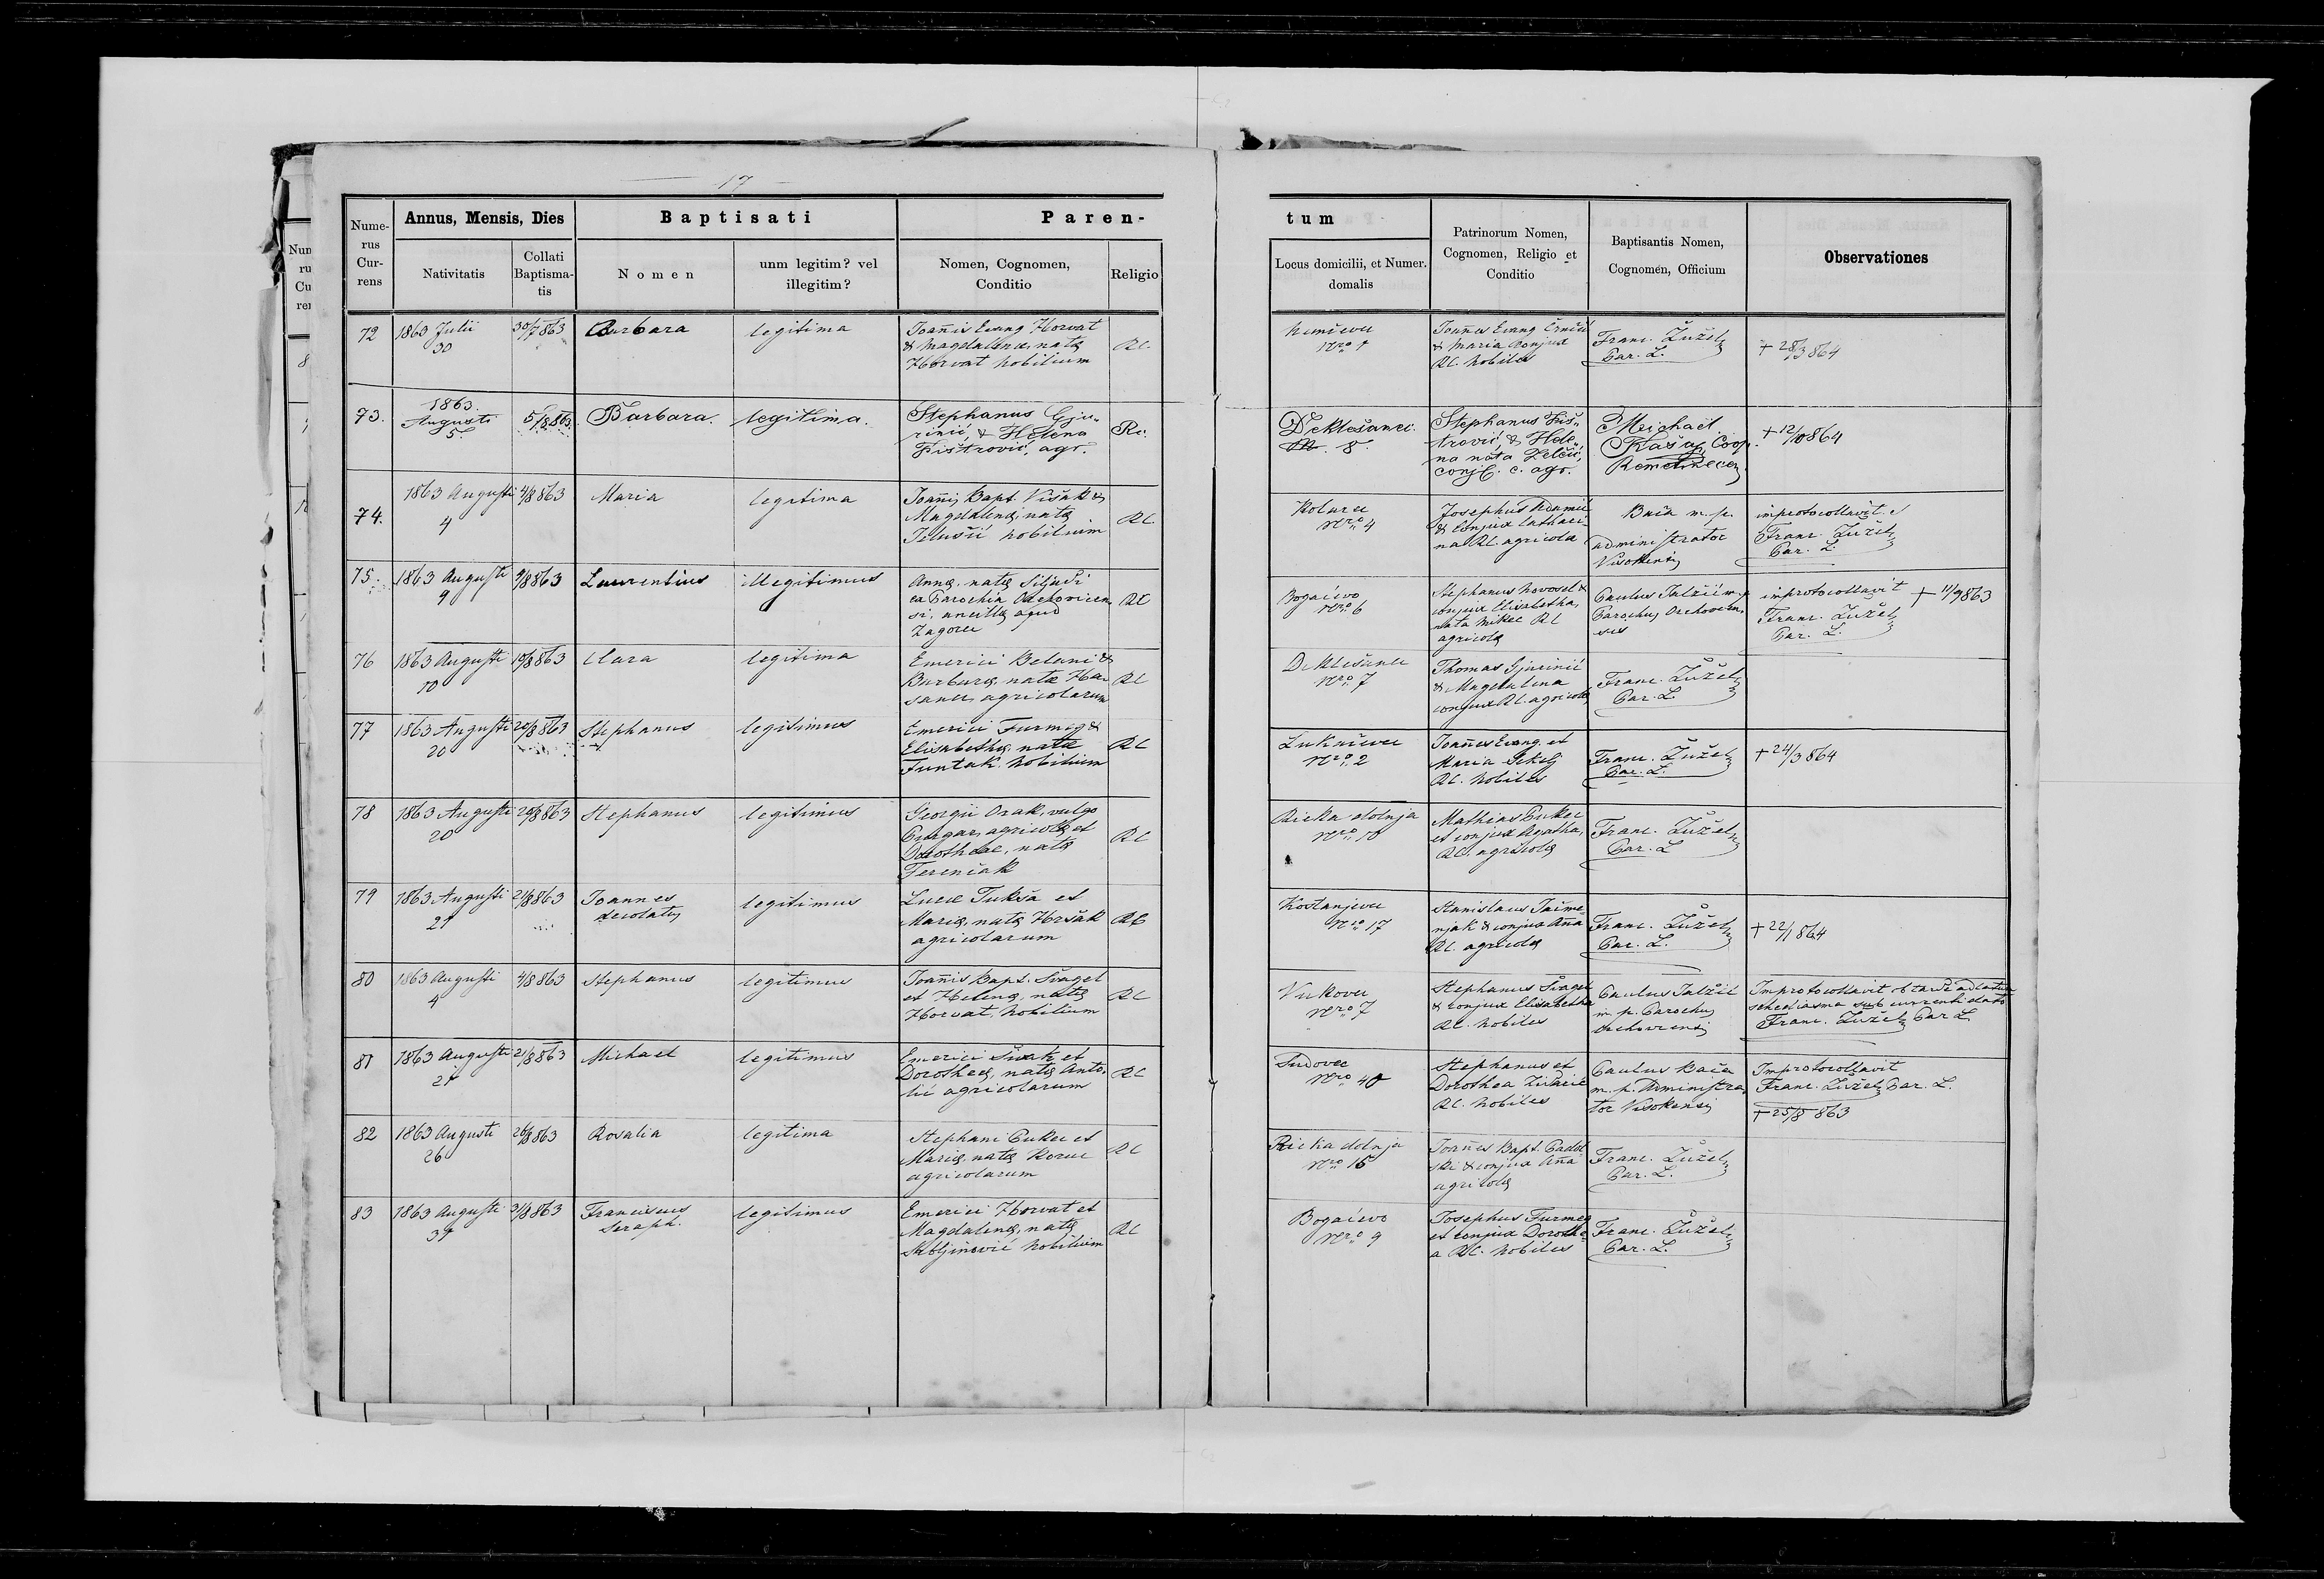 17
Numerus Currens
Annus, Mensis, Dies
Baptisati
Paren-
tum
Nativitatis
Collati Baptismatis
Nomen
unm legitim? vel illegitim?
Nomen, Cognomen, Conditio
Religio
Locus domicilii, et Numer. domalis
Patrinorum Nomen, Cognomen, Religio et Conditio
Baptisantis Nomen, Cognomén, Officium
Observationes
72
1863 Julii
30
30/7 863
Barbara
legitima
Joañis Evang Horvat
& Magdalenæ, natæ
Horvat nobilium
RC.
Nro 1
Joañes Evang Črnčić
& Maria Conjux
RC. nobiles
Franc. Žužel
Par. L.
+ 28/3 864
73.
1863.
Augusti
5.
5/8 863.
Barbara.
legitima.
Stephanus Gju„
rinić, & Helena
Fištrović, agr.
Rc.
Deklešanec.
N. 8.
Stephanus Fiš„
trović, & Hele„
na náta
conj. c. agr.
Michael
Coop.
+ 12/10 864
74.
1863 Augusti
4
4/8 863
Maria
legitima
Joañis Bapt. Višak &
Magdalenæ, natæ
Jelušić nobilium
RC
Kolarec
Nro 4
Josephus Adamić
& Conjux Cathari-
na RC. agricolæ
Bača m. p.
administrator
Visokensis
improtocollavit
Franc. Žužel
Par. L.
75.
1863 Augusti
9
9/8 863
Laurentius
illegitimus
Annæ, natæ
ex Parochia
si, ancillæ apud
Zagorec
RC
Bogačevo
Nro 6
Stephanus Novosel &
conjux Elisabetha,
nata Mikec RC
agricolæ
Paulus Jalžić m. p.
Parochus Orehoven-
sis
improtocollavit
Franc. Žužel
Par. L.
+ 11/9 863
76
1863 Augusti
10
10/8 863
Clara
legitima
Emerici Belani &
Barbaræ, natæ Har
sanec, agricolarum
RC
Deklešanec
Nro 7
Thomas Gjurinić
& Magdalena
conjux RC. agricolæ
Franc. Žužel
Par. L.
77
1863 Augusti
20
20/8 863
Stephanus
legitimus
Emerici Furmeg &
Elisabethæ, natæ
Funtak nobilium
RC
Lukačevec
Nro 2
Joañes Evang. et
Maria Sekelj
RC. nobiles
Franc. Žužel
Par. L.
+ 24/3 864
78
1863 Augusti
20
20/8 863
Stephanus
legitimus
Georgii Orak, vulgo
agricolæ, et
Dorotheae, natæ
Ferenčak
RC
Rieka dolnja
Nro 10
Mathias Cukec
et conjux Agatha,
RC. agricolæ
Franc. Žužel
Par. L
79
1863 Augusti
21
21/8 863
Joannes
decolatus
legitimus
Lucæ Tukša et
Mariæ, natæ Hršak
agricolarum
RC
Kostanjevec
Nro 17
Stanislaus Jačme
njak & conjux Aña
RC. agricolæ
Franc. Žužel
Par. L.
+ 22/1 864
80
1863 Augusti
4
4/8 863
Stephanus
legitimus
Joañis Bapt. Švagel
et Helenæ, natæ
Horvat, nobilium
RC
Vukovec
Nro 7
Stephanus Švagel
& conjux Elisabetha
RC. nobiles
Paulus Jalžić
m. p. Parochus
Improtocollavit ob tarde
schediasma sub currenti dato
Franc. Žužel Par L
81
1863 Augusti
21
21/8 863
Michael
legitimus
Emerici et
Dorotheæ, natæ Anto-
lić agricolarum
RC
Sudovec
Nro 40
Stephanus et
Dorothea
RC. nobiles
Paulus Bača
m. p. Administra
tor Visokensis
Improtocollavit
Franc. Žužel Par. L.
+ 25/8 863
82
1863 Augusti
26
26/8 863
Rosalia
legitima
Stephani Cukec et
Mariæ, natæ
agricolarum
RC
Rieka dolnja
Nro 15
Joañes Bapt.
& conjux Aña
agricolæ
Franc. Žužel
Par. L.
83
1863 Augusti
31
31/8 863
Franciscus
Seraph.
legitimus
Emerici Horvat et
Magdalenæ, natæ
nobilium
RC
Bogačevo
Nro 9
Josephus Furmeg
et conjux Dorothe-
a RC. nobiles
Franc. Žužel
Par. L.